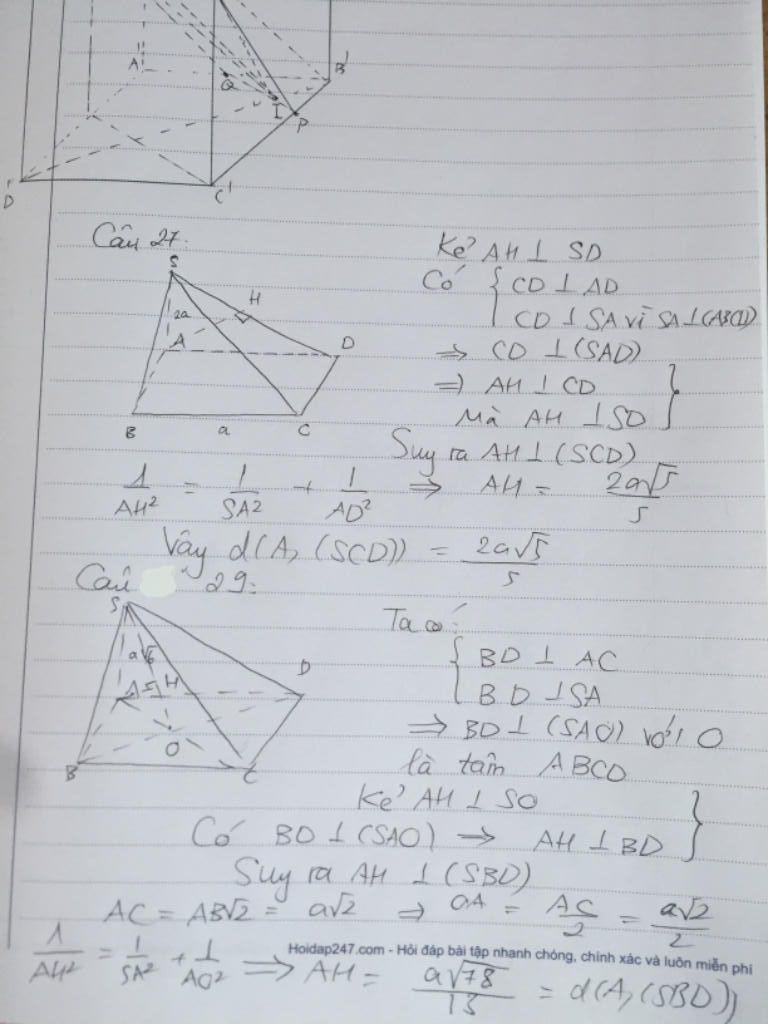 A'
B'
Q
I
P
D'
C'
Câu 27.
S
2a
H
A
D
B
a
C
Kẻ AH ⊥ SD
Có { CD ⊥ AD
CD ⊥ SA vì SA ⊥ (ABCD)
⇒ CD ⊥ (SAD)
⇒ AH ⊥ CD
Mà AH ⊥ SD }
Suy ra AH ⊥ (SCD)
1/AH² = 1/SA² + 1/AD² ⇒ AH = 2a√5/5
Vậy d(A, (SCD)) = 2a√5/5
Câu 29:
S
a√6
A
H
D
O
B
C
Ta có:
{ BD ⊥ AC
BD ⊥ SA
⇒ BD ⊥ (SAO) với O
là tâm ABCD
Kẻ AH ⊥ SO
Có BD ⊥ (SAO) → AH ⊥ BD }
Suy ra AH ⊥ (SBD)
AC = AB√2 = a√2 ⇒ OA = AC/2 = a√2/2
Hoidap247.com - Hỏi đáp bài tập nhanh chóng, chính xác và luôn miễn phí
1/AH² = 1/SA² + 1/AO² ⇒ AH = a√78/13 = d(A, (SBD))